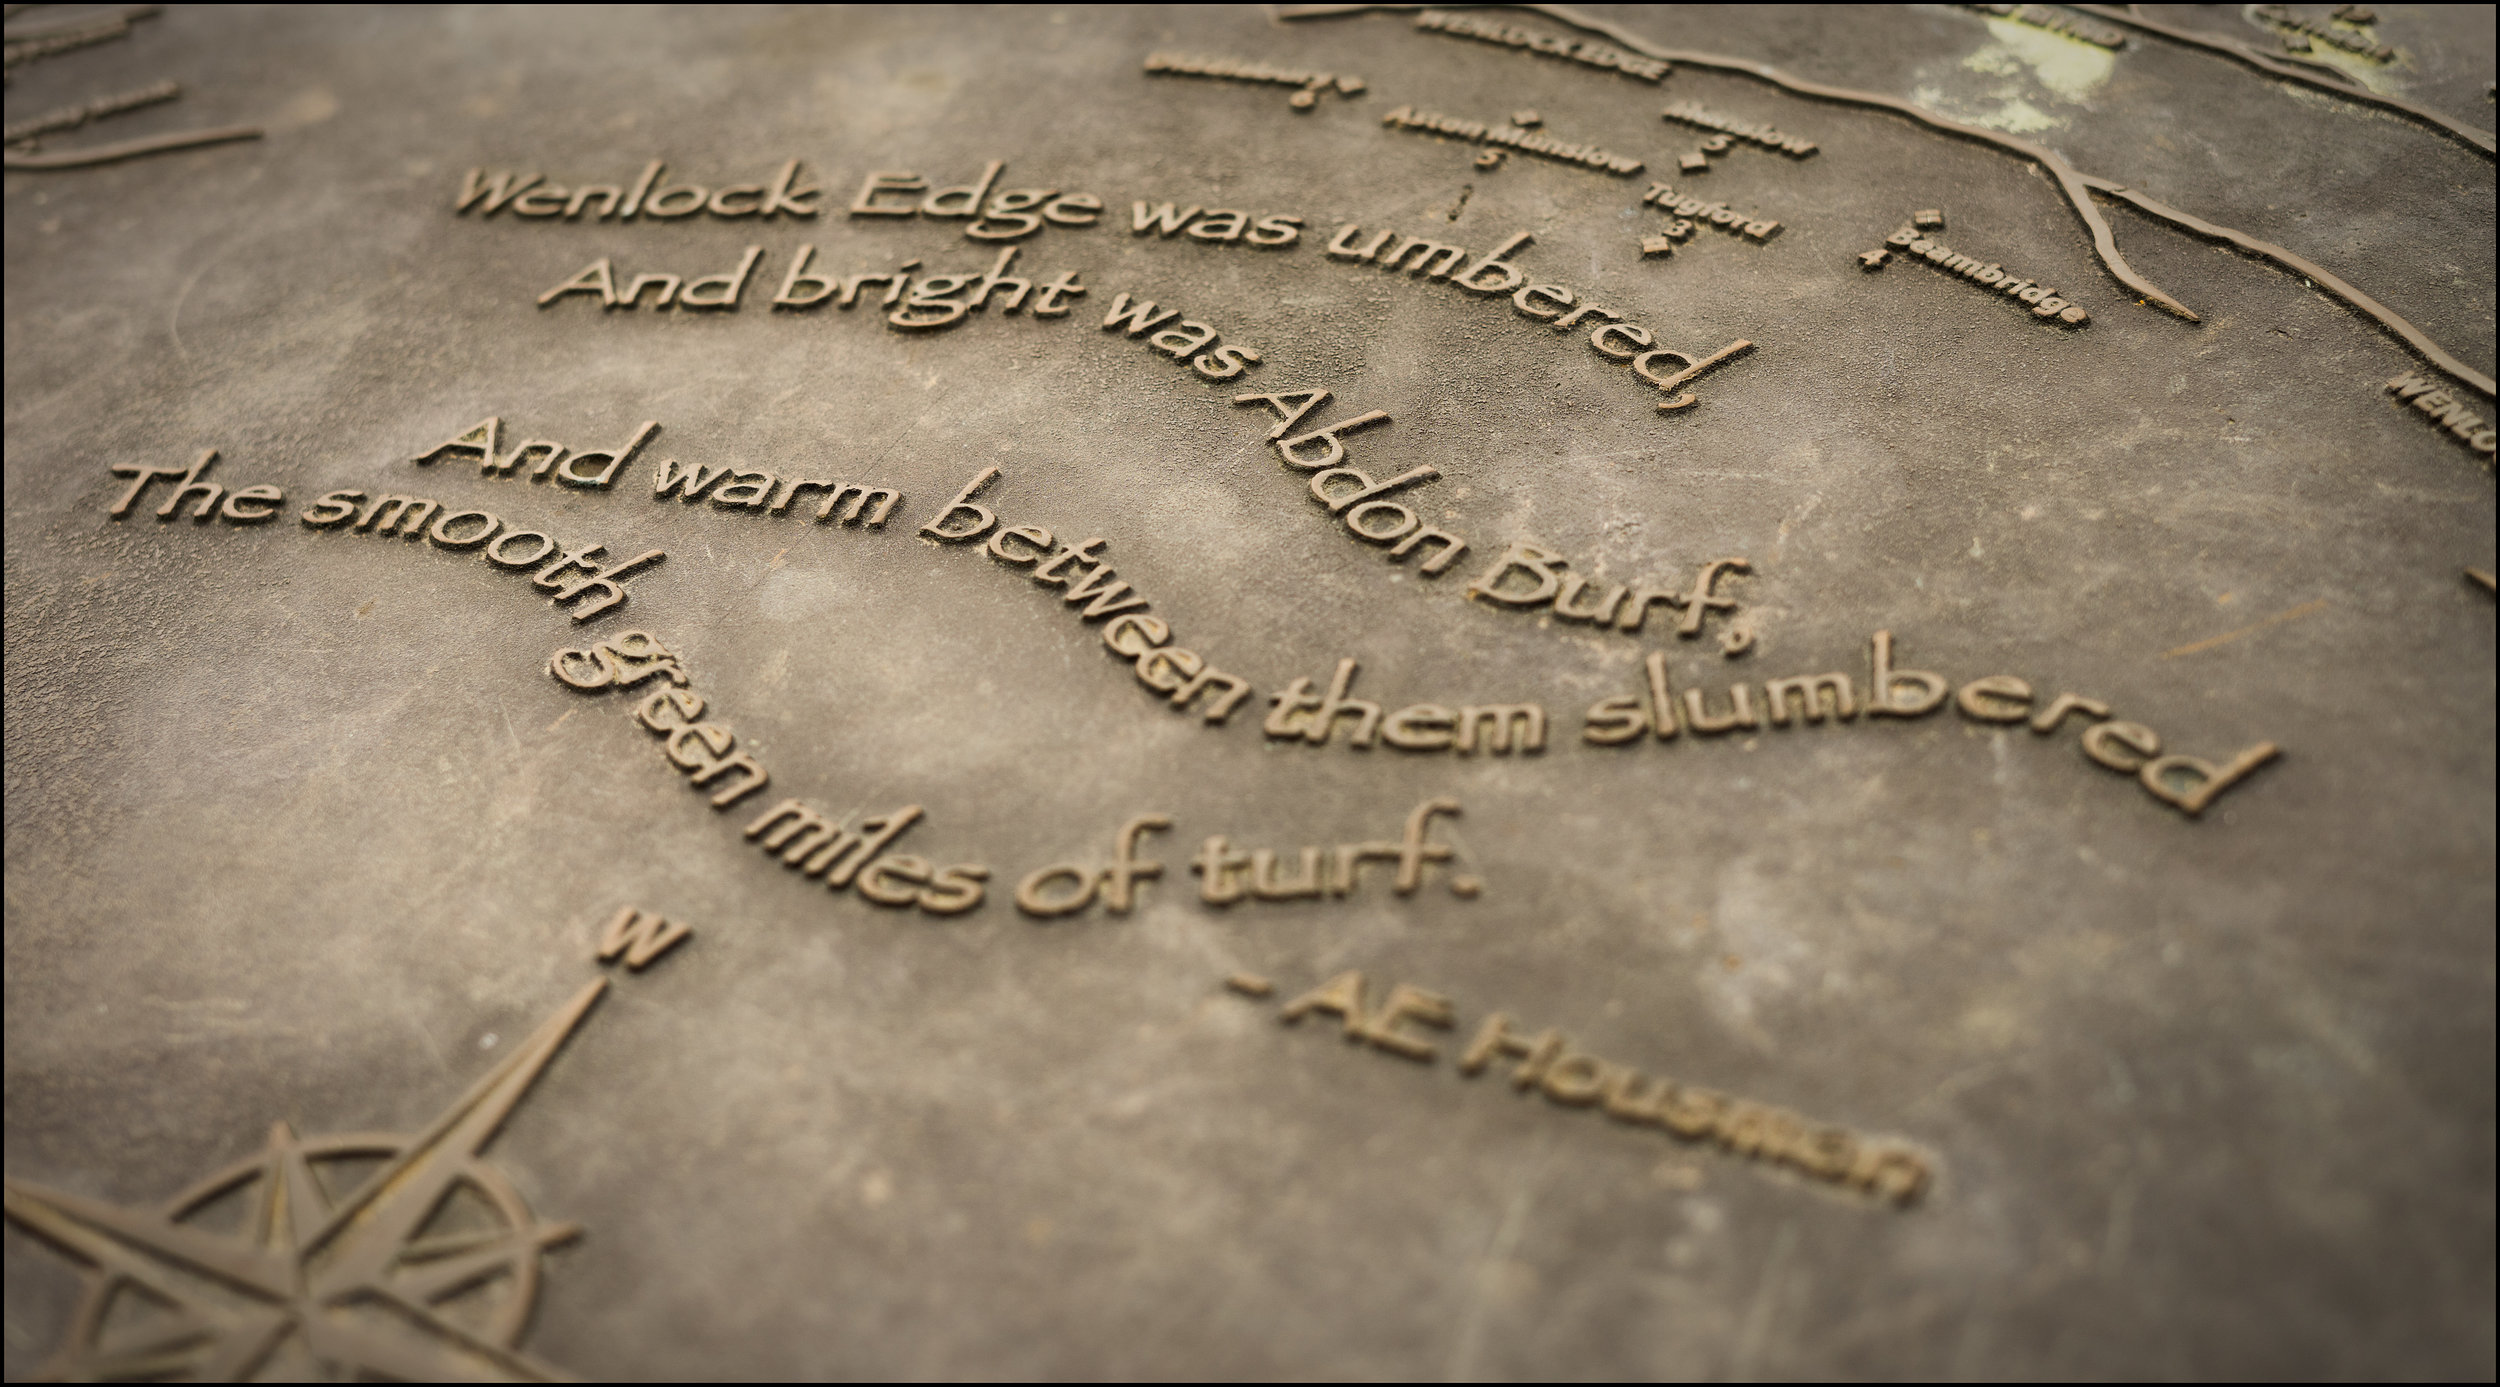 WENLOCK EDGE
Aston Munslow
5
Munslow
5
Tugford
3
Beambridge
4
WENLO
Wenlock Edge was umbered,
And bright was Abdon Burf,
And warm between them slumbered
The smooth green miles of turf.
- AE Housman
W